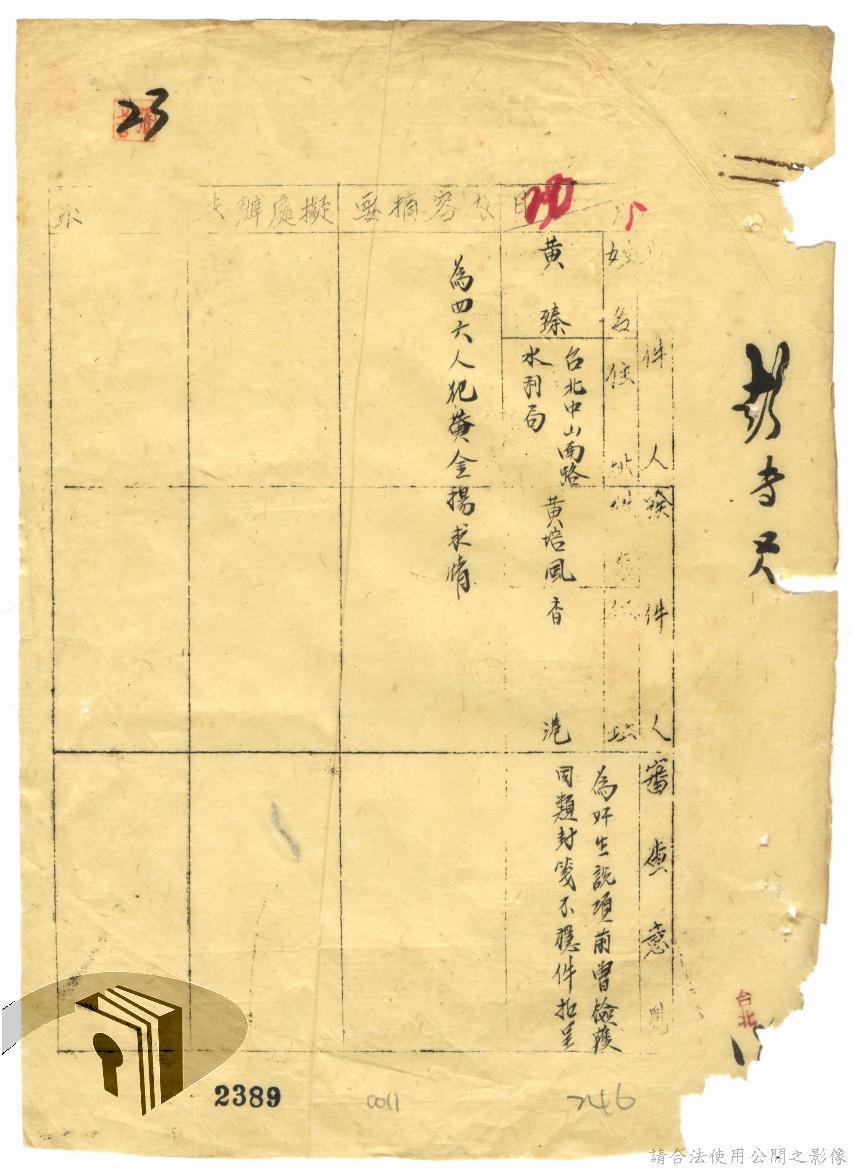 彭專員
件人
姓名住址
發件人
審查意見
黃臻
台北中山南路
水利局
黃培風
香
港
為奸生說項前曾檢獲
同類封箋不穩件扣呈
容摘要
為四六人犯黃金揚求情
擬處辦
示
23
20
台北
2389
0011
246
請合法使用公開之影像